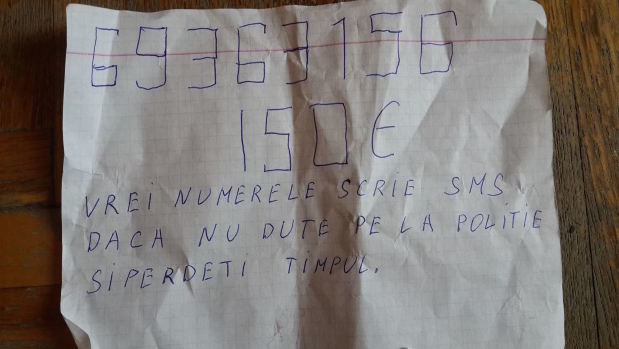 69363156
150€
VREI NUMERELE SCRIE SMS
DACA NU DUTE PE LA POLITIE
SIPERDETI TIMPUL.